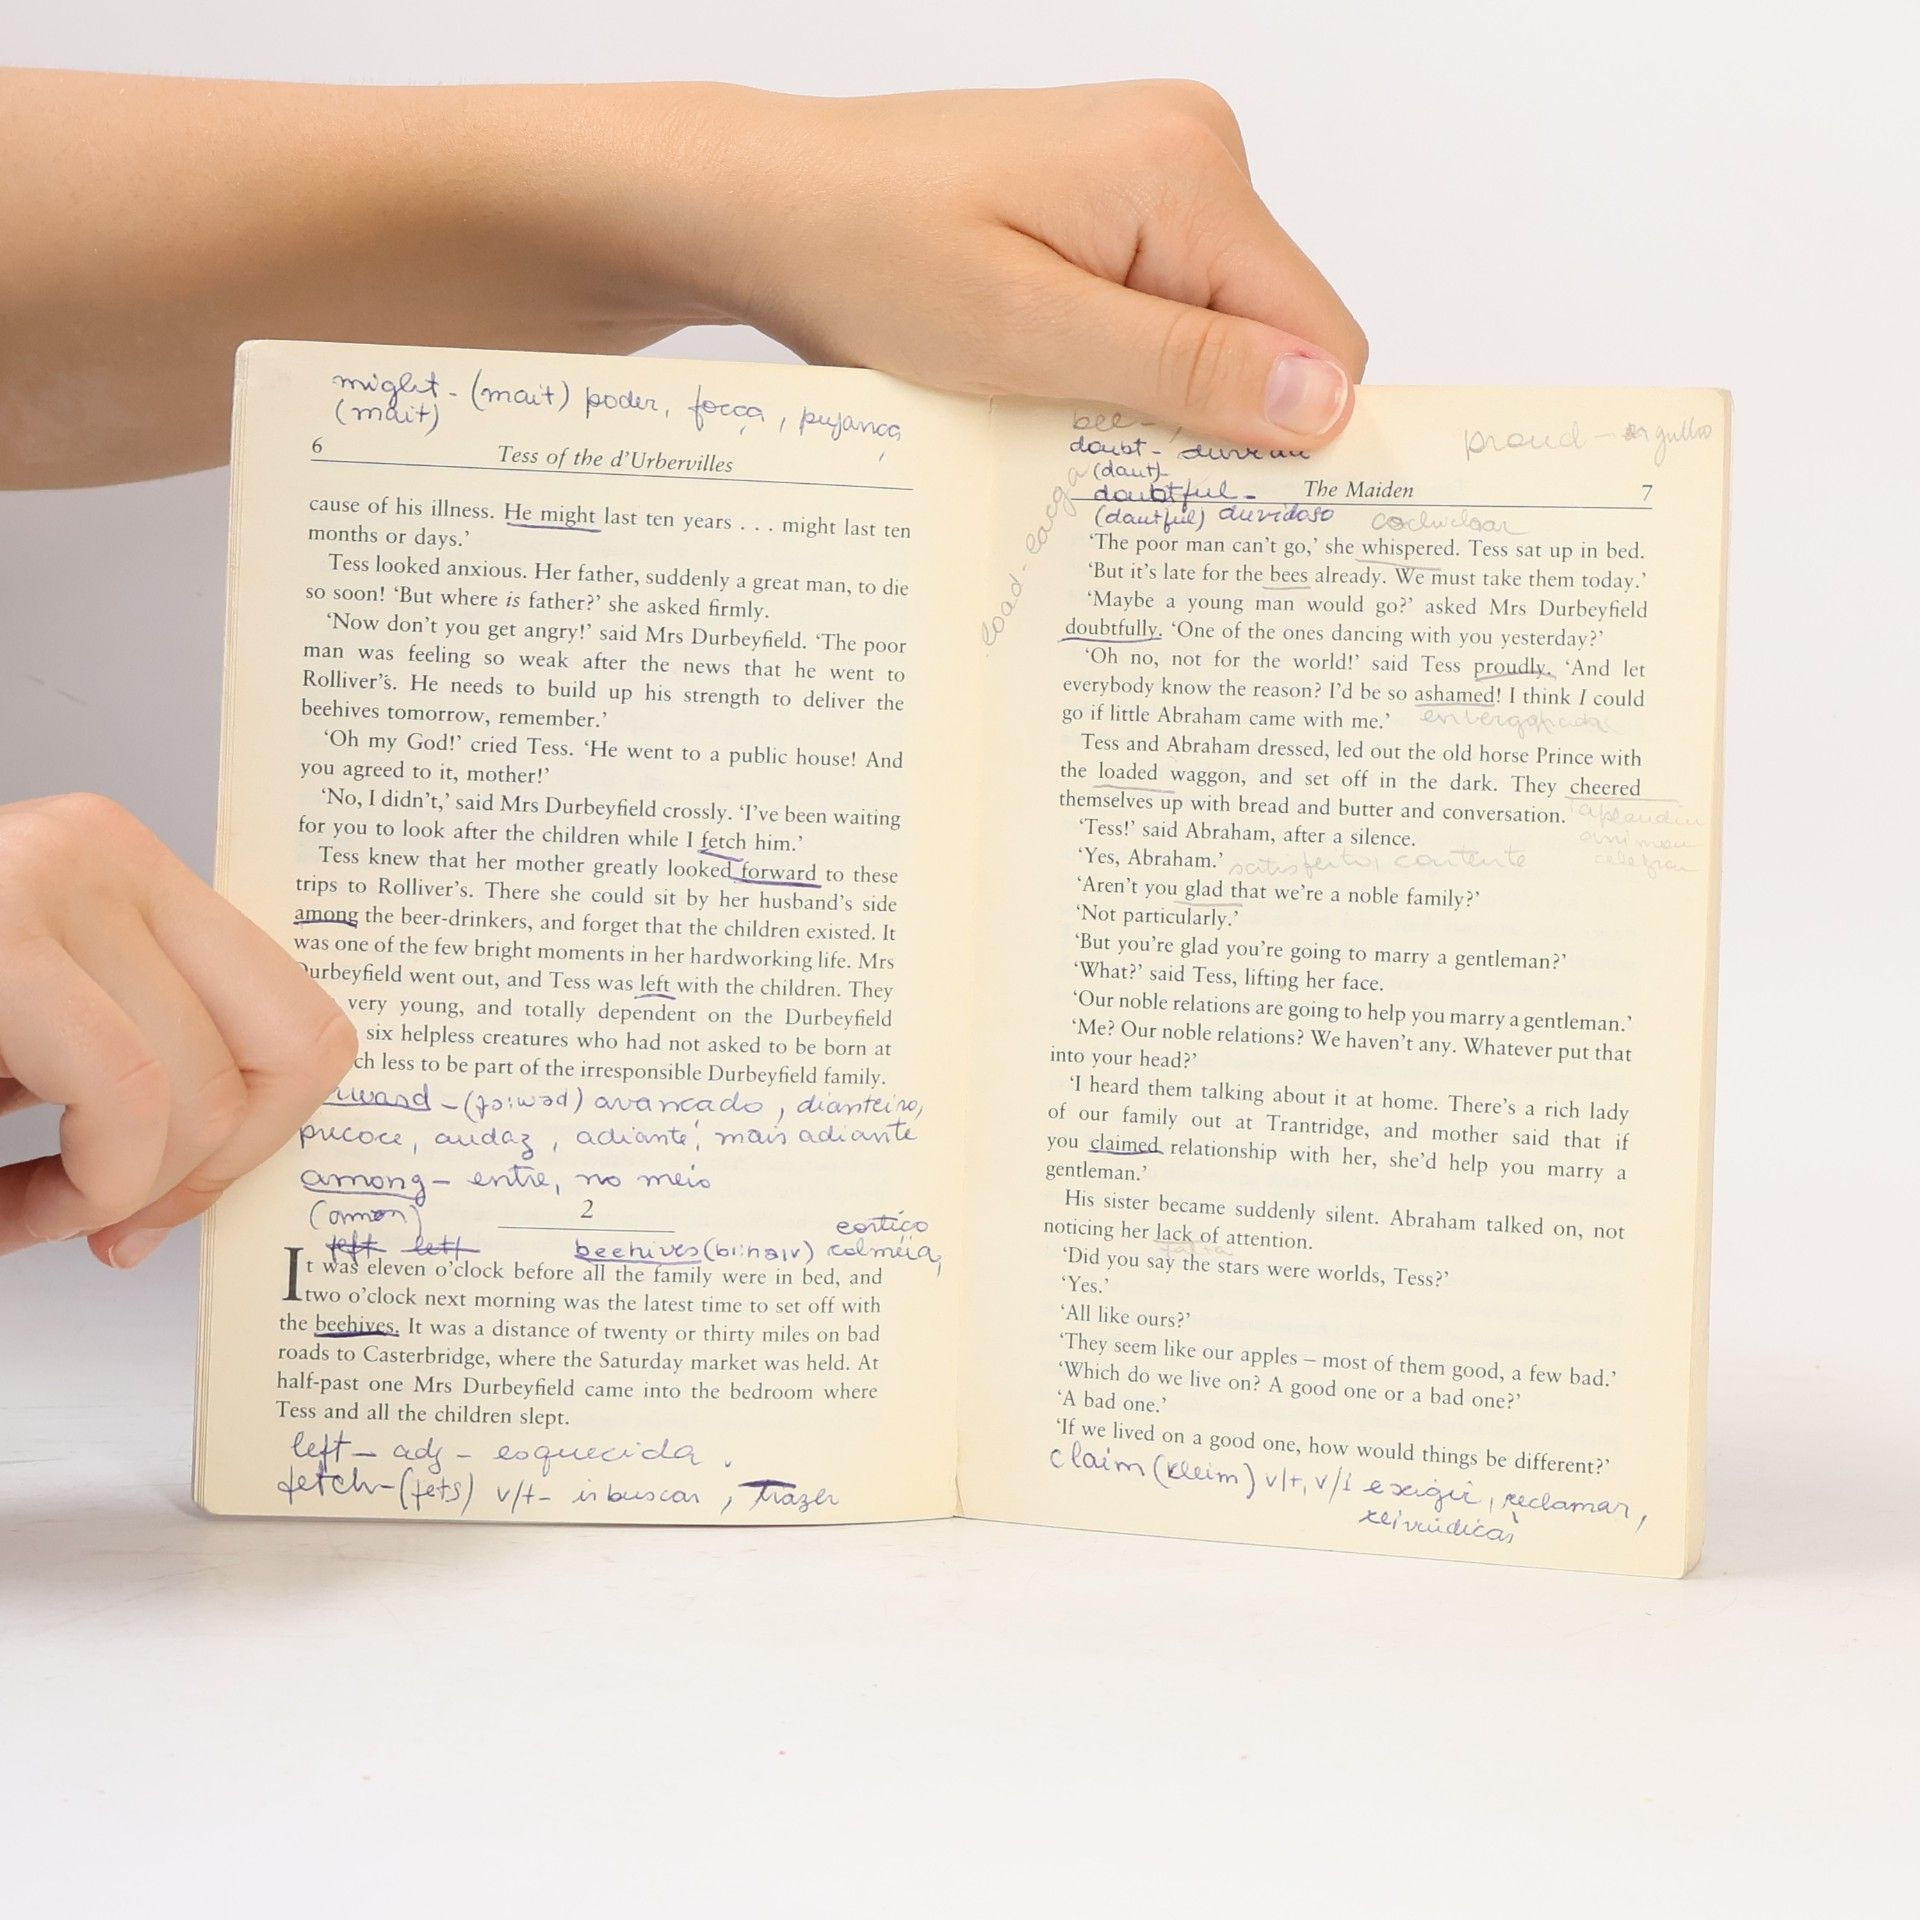 might - (mait) poder, força, pujança
(mait)
6 Tess of the d'Urbervilles
cause of his illness. He might last ten years . . . might last ten
months or days.'
Tess looked anxious. Her father, suddenly a great man, to die
so soon! 'But where is father?' she asked firmly.
'Now don't you get angry!' said Mrs Durbeyfield. 'The poor
man was feeling so weak after the news that he went to
Rolliver's. He needs to build up his strength to deliver the
beehives tomorrow, remember.'
'Oh my God!' cried Tess. 'He went to a public house! And
you agreed to it, mother!'
'No, I didn't,' said Mrs Durbeyfield crossly. 'I've been waiting
for you to look after the children while I fetch him.'
Tess knew that her mother greatly looked forward to these
trips to Rolliver's. There she could sit by her husband's side
among the beer-drinkers, and forget that the children existed. It
was one of the few bright moments in her hardworking life. Mrs
Durbeyfield went out, and Tess was left with the children. They
very young, and totally dependent on the Durbeyfield
six helpless creatures who had not asked to be born at
ch less to be part of the irresponsible Durbeyfield family.
avançado, dianteiro,
precoce, audaz, adiante, mais adiante
among - entre, no meio
2
(amon) cortiço
left left beehives (bi:haiv) colméia,
It was eleven o'clock before all the family were in bed, and
two o'clock next morning was the latest time to set off with
the beehives. It was a distance of twenty or thirty miles on bad
roads to Casterbridge, where the Saturday market was held. At
half-past one Mrs Durbeyfield came into the bedroom where
Tess and all the children slept.
left - adj - esquecida
fetch - (fets) v/t - ir buscar, trazer
bee -
proud - orgulho
doubt -
(daut)
doubtful - The Maiden 7
(dautful) duvidoso cochichar
load - carga
'The poor man can't go,' she whispered. Tess sat up in bed.
'But it's late for the bees already. We must take them today.'
'Maybe a young man would go?' asked Mrs Durbeyfield
doubtfully. 'One of the ones dancing with you yesterday?'
'Oh no, not for the world!' said Tess proudly. 'And let
everybody know the reason? I'd be so ashamed! I think I could
go if little Abraham came with me.'
Tess and Abraham dressed, led out the old horse Prince with
the loaded waggon, and set off in the dark. They cheered
themselves up with bread and butter and conversation.
'Tess!' said Abraham, after a silence.
'Yes, Abraham.' satisfeito, contente
'Aren't you glad that we're a noble family?'
'Not particularly.'
'But you're glad you're going to marry a gentleman?'
'What?' said Tess, lifting her face.
'Our noble relations are going to help you marry a gentleman.'
'Me? Our noble relations? We haven't any. Whatever put that
into your head?'
'I heard them talking about it at home. There's a rich lady
of our family out at Trantridge, and mother said that if
you claimed relationship with her, she'd help you marry a
gentleman.'
His sister became suddenly silent. Abraham talked on, not
noticing her lack of attention.
falta
'Did you say the stars were worlds, Tess?'
'Yes.'
'All like ours?'
'They seem like our apples – most of them good, a few bad.'
'Which do we live on? A good one or a bad one?'
'A bad one.'
'If we lived on a good one, how would things be different?'
claim (kleim) v/t, v/i exigir, reclamar,